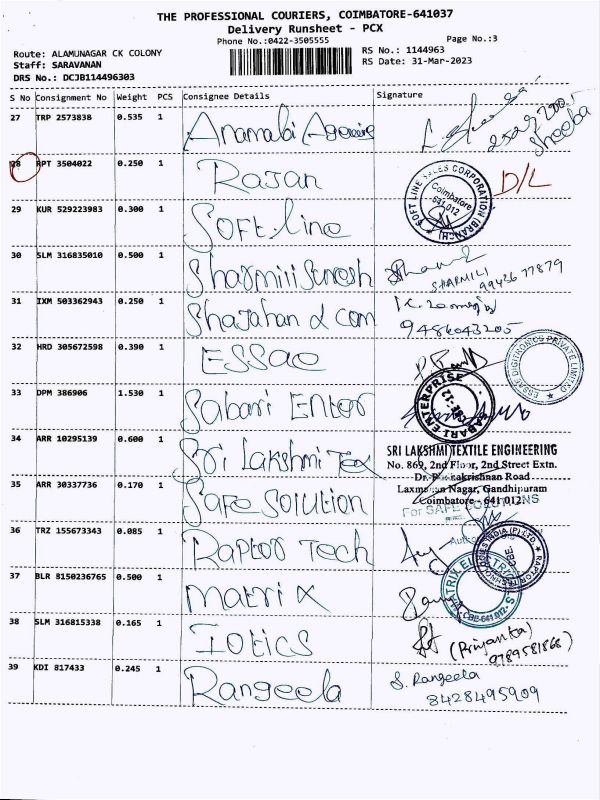 THE PROFESSIONAL COURIERS, COIMBATORE-641037
Delivery Runsheet - PCX
Phone No.:0422-3505555
Page No.:3
Route: ALAMUNAGAR CK COLONY
RS No.: 1144963
Staff: SARAVANAN
RS Date: 31-Mar-2023
DRS No.: DCJB114496303
S No Consignment No Weight PCS Consignee Details Signature
27 TRP 2573838 0.535 1
Sheeba
28 RPT 3504022 0.250 1 Rajan D/L
SOFT LINE SALES CORPORATION (BRANCH)
Coimbatore
641 012
29 KUR 529223983 0.300 1 Soft.line
30 SLM 316835010 0.500 1 Sharmili Suresh
SHARMILI
99426 77879
31 IXM 503362943 0.250 1 Shajahan & com
9486043205
32 HRD 305672598 0.390 1 ESSae
ESSAE DIGITRONICS PRIVATE LIMITED
33 DPM 386906 1.530 1 Sabari Enter
SABARI ENTERPRISE
CBE-12
34 ARR 10295139 0.600 1 Sri Lakshmi Tex
SRI LAKSHMI TEXTILE ENGINEERING
No. 869, 2nd Floor, 2nd Street Extn.
Road
Nagar, Gandhipuram
Coimbatore - 641 012.
35 ARR 30337736 0.170 1 Safe Solution
For SAFE SOLUTIONS
36 TRZ 155673343 0.085 1 Raptor Tech
INDIA (P) LTD
CBE
37 BLR 8150236765 0.500 1 Matrix
CBE-641 012
38 SLM 316815338 0.165 1 Iotics
(Priyanka)
9789581866
39 KDI 817433 0.245 1 Rangeela
S. Rangeela
8428495909